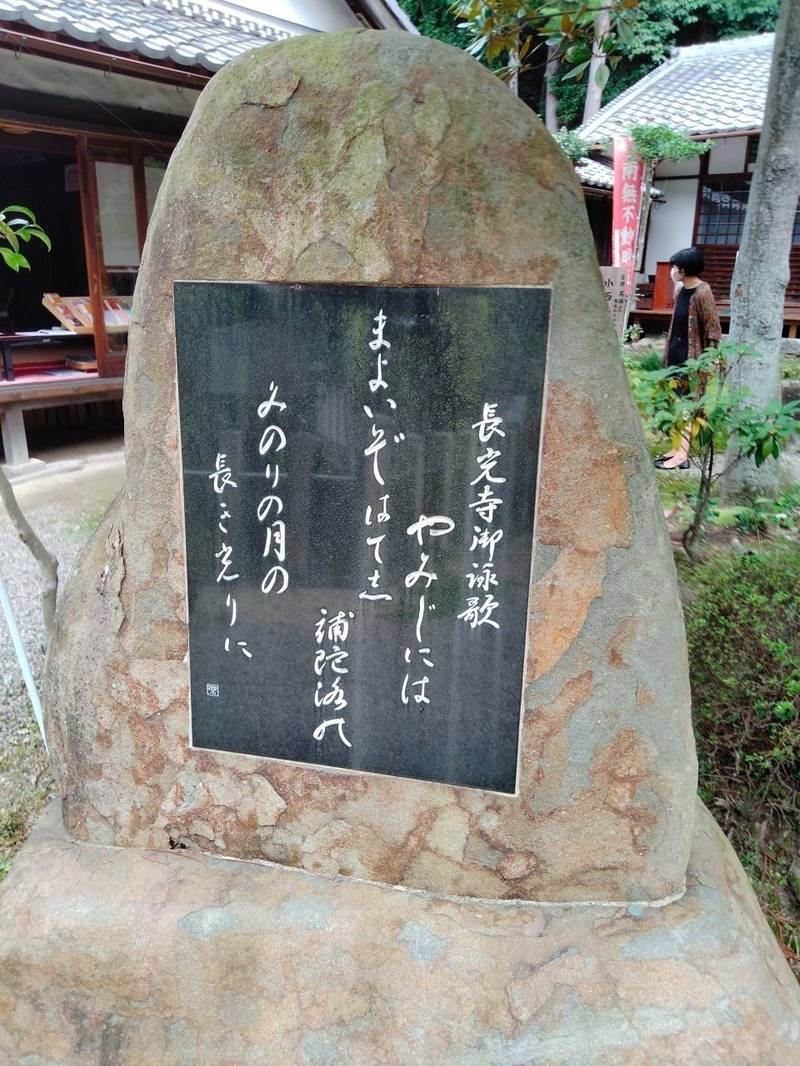 長光寺御詠歌
やみじには
まよいぞはて志
補陀洛乃
みのりの月の
長き光りに
南無不動明